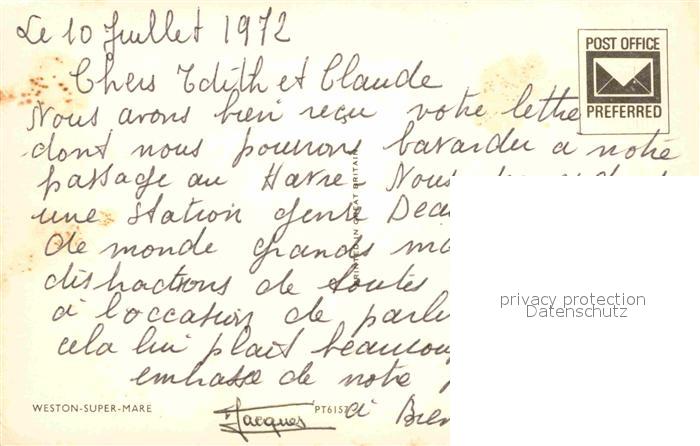 Le 10 Juillet 1972
POST OFFICE
PREFERRED
Chers Edith et Claude
Nous avons bien reçu votre lettre
dont nous pourrons bavarder a notre
passage au Havre. Nous
une station genre
de monde grands
distractions de toutes
à l'occasion de
cela lui plait
embrasse de notre
à
Jacques
PRINTED IN GREAT BRITAIN
WESTON-SUPER-MARE
PT6157
privacy protection
Datenschutz